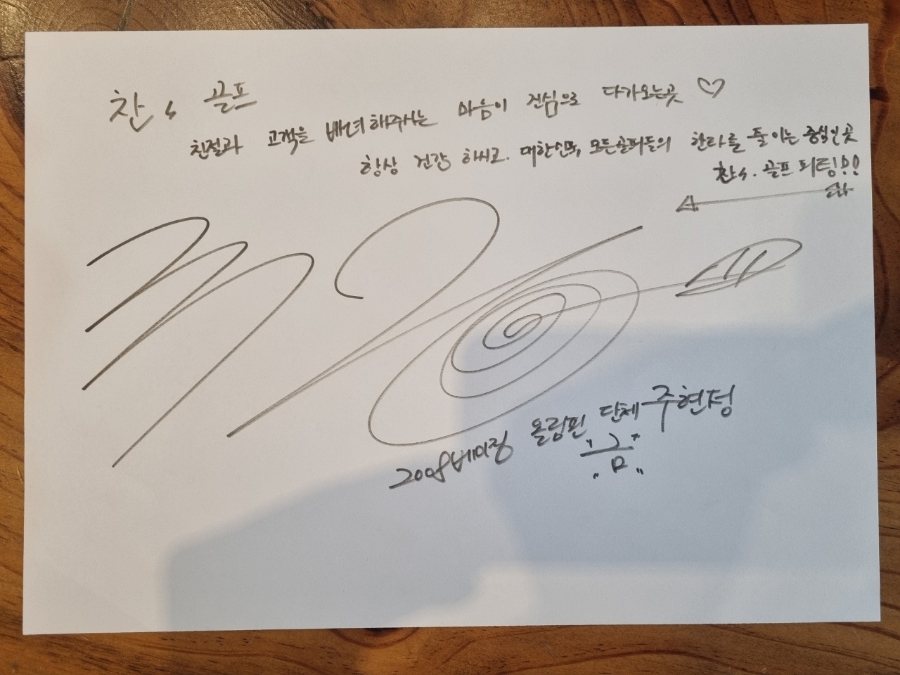 찬s 골프
친절과 고객을 배녀해주시는 마음이 진심으로 다가오는곳 ♡
항상 건강 하시고. 대한민국, 모든골퍼들의 한타를 줄이는 중심인곳
찬s. 골프 피팅!!
2008베이징 올림픽 단체 주현정
금